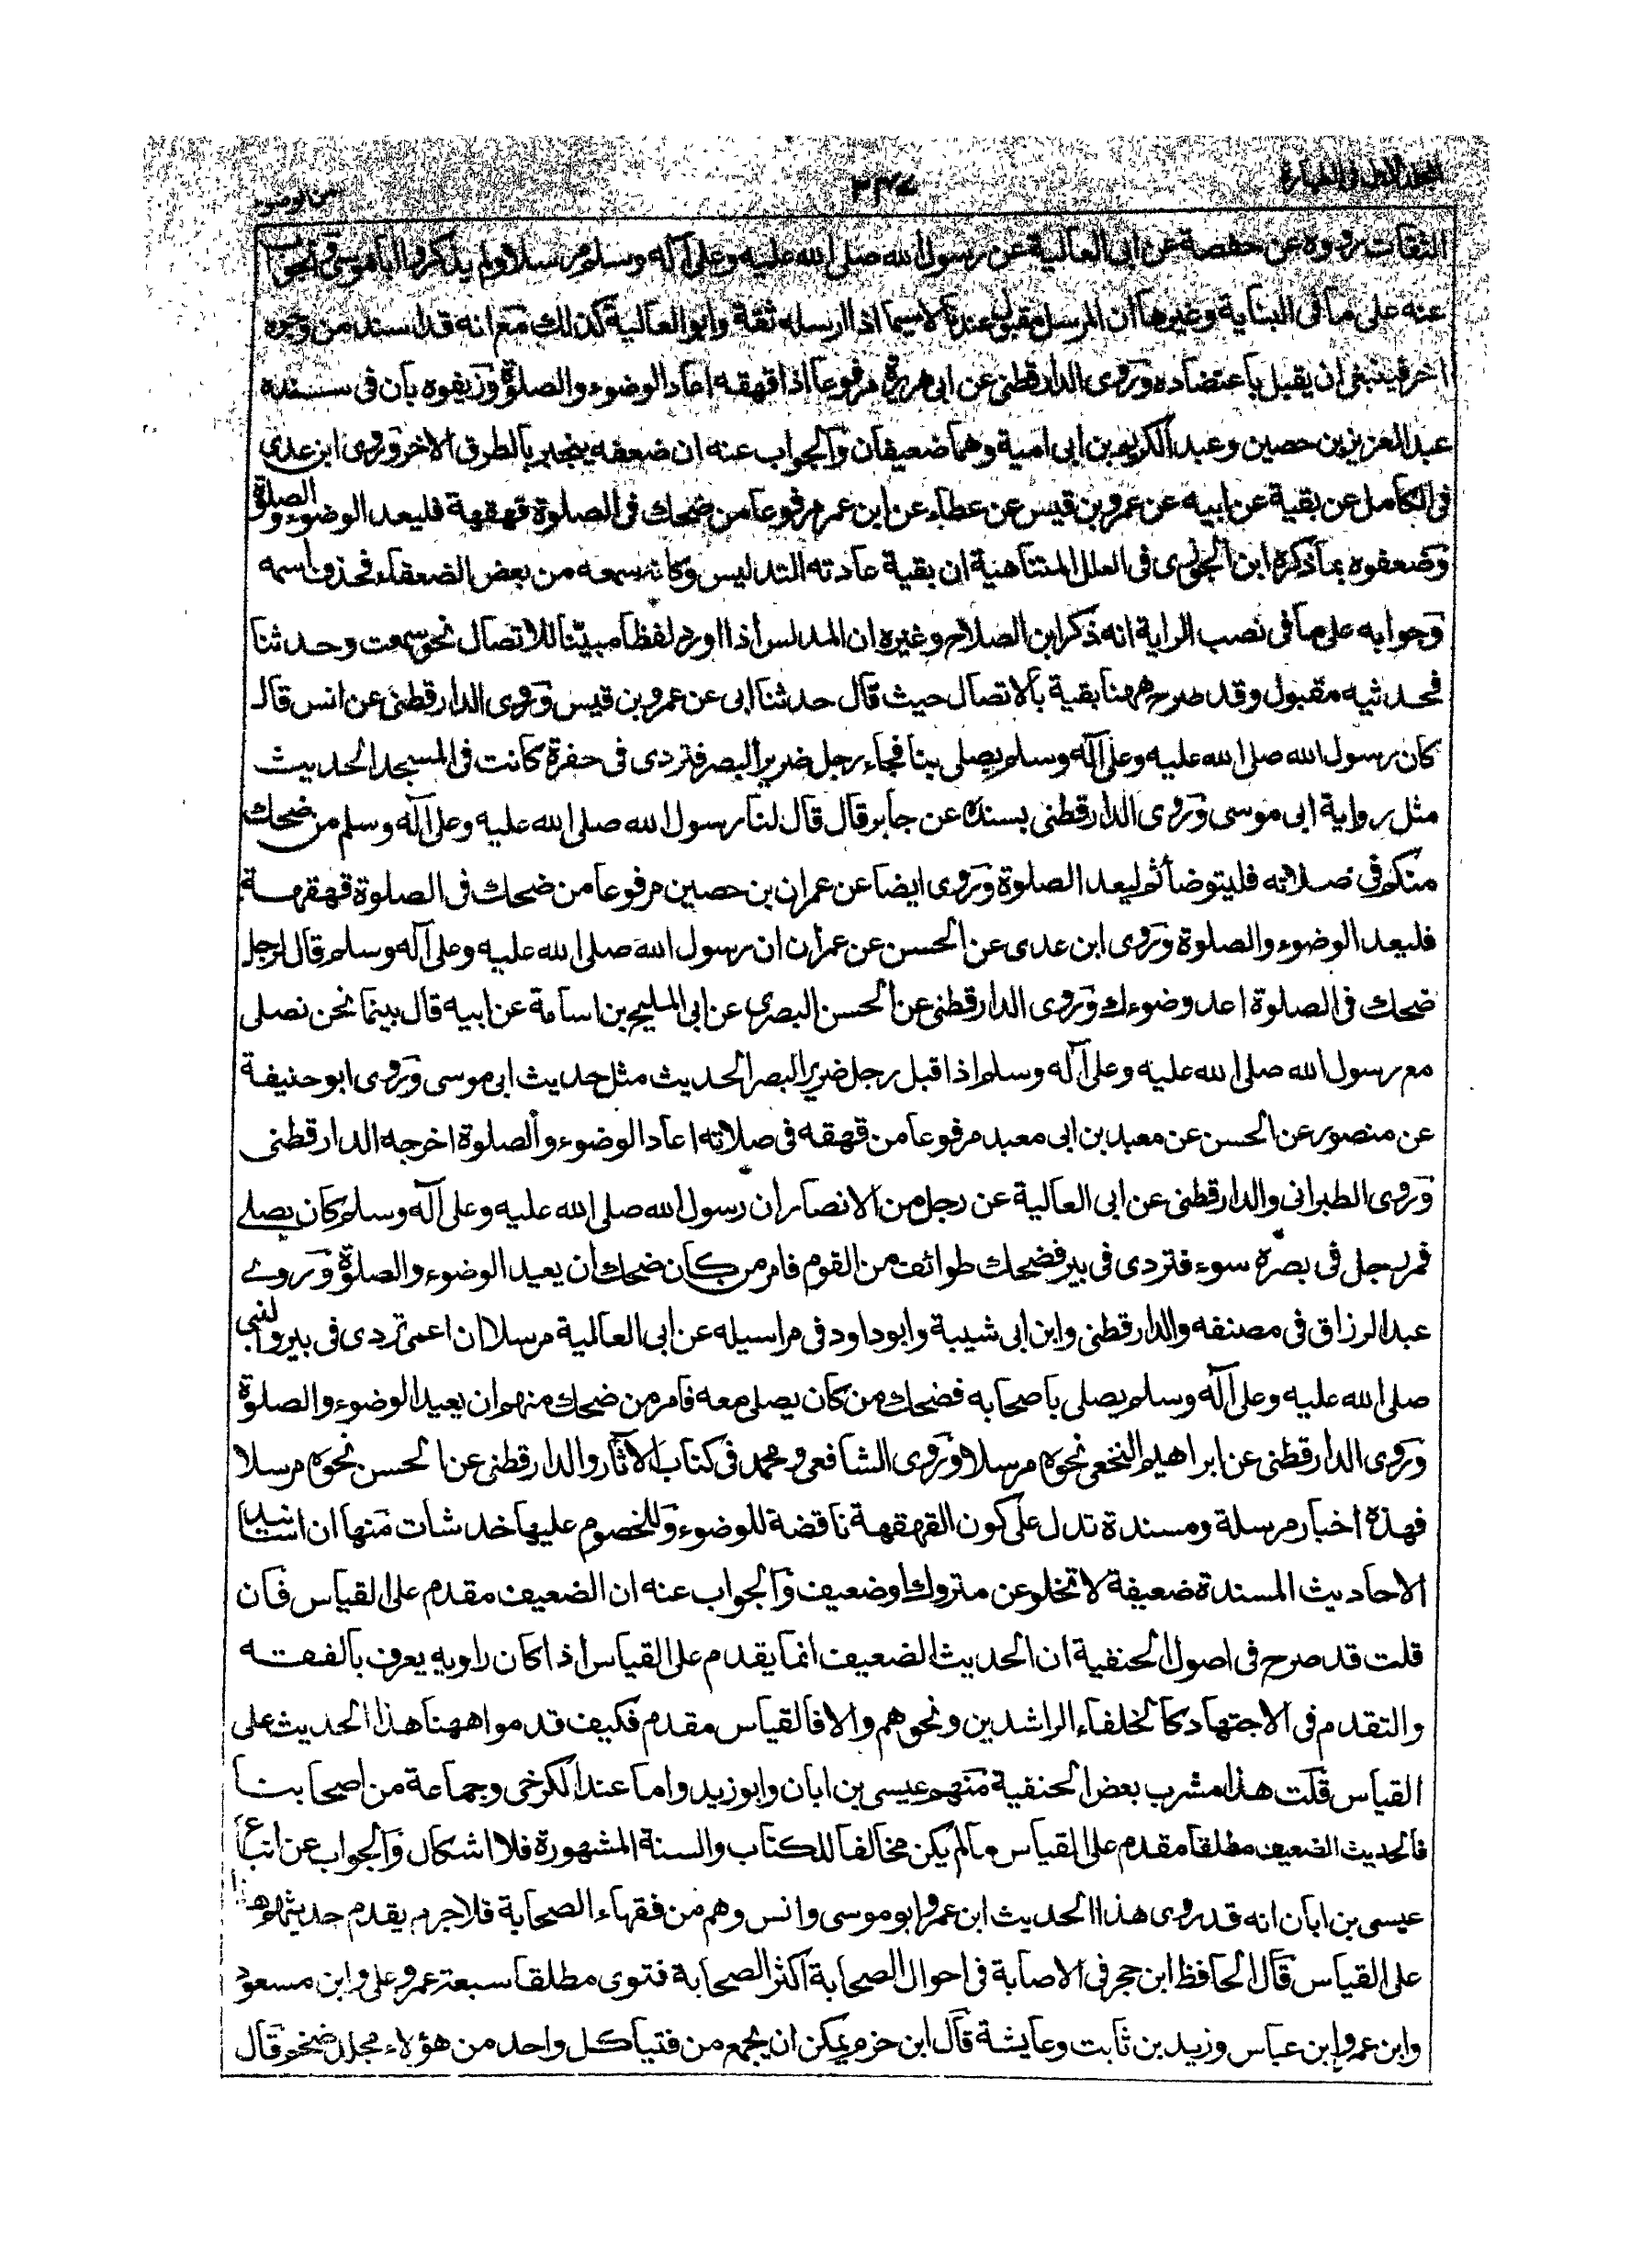 المجلد الاول في الطهارة
الثقات رووه عن حفصة عن ابى العالية عن رسول الله صلى الله عليه وعلى آله وسلم مرسلا ولم يذكروا ابا موسى والجواب
عنه على ما فى البناية وغيرها ان المرسل مقبول عندنا لاسيما اذا ارسله ثقة وابو العالية كذلك مع انه قد اسند من وجوه
اخر فينبغى ان يقبل باعتضاده وروى الدارقطنى عن ابى هريرة مرفوعا اذا قهقه اعاد الوضوء والصلوة وزيفوه بان فى سنده
عبد العزيز بن حصين وعبد الكريم بن ابى امية وهما ضعيفان والجواب عنه ان ضعفه ينجبر بالطرق الاخر وروى ابن عدى
فى الكامل عن بقية عن ابيه عن عمرو بن قيس عن عطاء عن ابن عمر مرفوعا من ضحك فى الصلوة قهقهة فليعد الوضوء والصلوة
وضعفوه بما ذكره ابن الجوزى فى العلل المتناهية ان بقية عادته التدليس وكانه سمعه من بعض الضعفاء فحذف اسمه
وجوابه على ما فى نصب الراية انه ذكر ابن الصلاح وغيره ان المدلس اذا اورد لفظا مبينا للاتصال نحو سمعت وحدثنا
فحديثه مقبول وقد صرح ههنا بقية بالاتصال حيث قال حدثنا ابى عن عمرو بن قيس وروى الدارقطنى عن انس قال
كان رسول الله صلى الله عليه وعلى آله وسلم يصلى بنا فجاء رجل ضرير البصر فتردى فى حفرة كانت فى المسجد الحديث
مثل رواية ابى موسى وروى الدارقطنى بسنده عن جابر قال قال لنا رسول الله صلى الله عليه وعلى آله وسلم من ضحك
منكم فى صلاته فليتوضأ ثم ليعد الصلوة وروى ايضا عن عمران بن حصين مرفوعا من ضحك فى الصلوة قهقهة
فليعد الوضوء والصلوة وروى ابن عدى عن الحسن عن عمران ان رسول الله صلى الله عليه وعلى آله وسلم قال لرجل
ضحك فى الصلوة اعد وضوءك وروى الدارقطنى عن الحسن البصرى عن ابى المليح بن اسامة عن ابيه قال بينما نحن نصلى
مع رسول الله صلى الله عليه وعلى آله وسلم اذا قبل رجل ضرير البصر الحديث مثل حديث ابى موسى وروى ابو حنيفة
عن منصور عن الحسن عن معبد بن ابى معبد مرفوعا من قهقه فى صلاته اعاد الوضوء والصلوة اخرجه الدارقطنى
وروى الطبرانى والدارقطنى عن ابى العالية عن رجل من الانصار ان رسول الله صلى الله عليه وعلى آله وسلم كان يصلے
فمر رجل فى بصره سوء فتردى فى بير فضحك طوائف من القوم فامر من كان ضحك ان يعيد الوضوء والصلوة وروے
عبد الرزاق فى مصنفه والدارقطنى وابن ابى شيبة وابو داود فى مراسيله عن ابى العالية مرسلا ان اعمى تردى فى بير والنبى
صلى الله عليه وعلى آله وسلم يصلى باصحابه فضحك من كان يصلى معه فامر من ضحك منهم ان يعيد الوضوء والصلوة
وروى الدارقطنى عن ابراهيم النخعى نحوه مرسلا وروى الشافعى ومحمد فى كتاب الآثار والدارقطنى عن الحسن نحوه مرسلا
فهذه اخبار مرسلة ومسندة تدل على كون القهقهة ناقضة للوضوء وللخصوم عليها خدشات منها ان اسانيد
الاحاديث المسندة ضعيفة لا تخلو عن متروك او ضعيف والجواب عنه ان الضعيف مقدم على القياس فان
قلت قد صرح فى اصول الحنفية ان الحديث الضعيف انما يقدم على القياس اذا كان راويه يعرف بالفقه
والتقدم فى الاجتهاد كالخلفاء الراشدين ونحوهم والا فالقياس مقدم فكيف قدموا ههنا هذا الحديث على
القياس قلت هذا مشرب بعض الحنفية منهم عيسى بن ابان وابو زيد واما عند الكرخى وجماعة من اصحابنا
فالحديث الضعيف مطلقا مقدم على القياس ما لم يكن مخالفا للكتاب والسنة المشهورة فلا اشكال والجواب عن اتباع
عيسى بن ابان انه قد روى هذا الحديث ابن عمر وابو موسى وانس وهم من فقهاء الصحابة فلا جرم يقدم حديثهم هذا
على القياس قال الحافظ ابن حجر فى الاصابة فى احوال الصحابة اكثر الصحابة فتوى مطلقا سبعة عمر وعلى وابن مسعود
وابن عمر وابن عباس وزيد بن ثابت وعايشة قال ابن حزم يمكن ان يجمع من فتيا كل واحد من هؤلاء مجلد ضخم قال